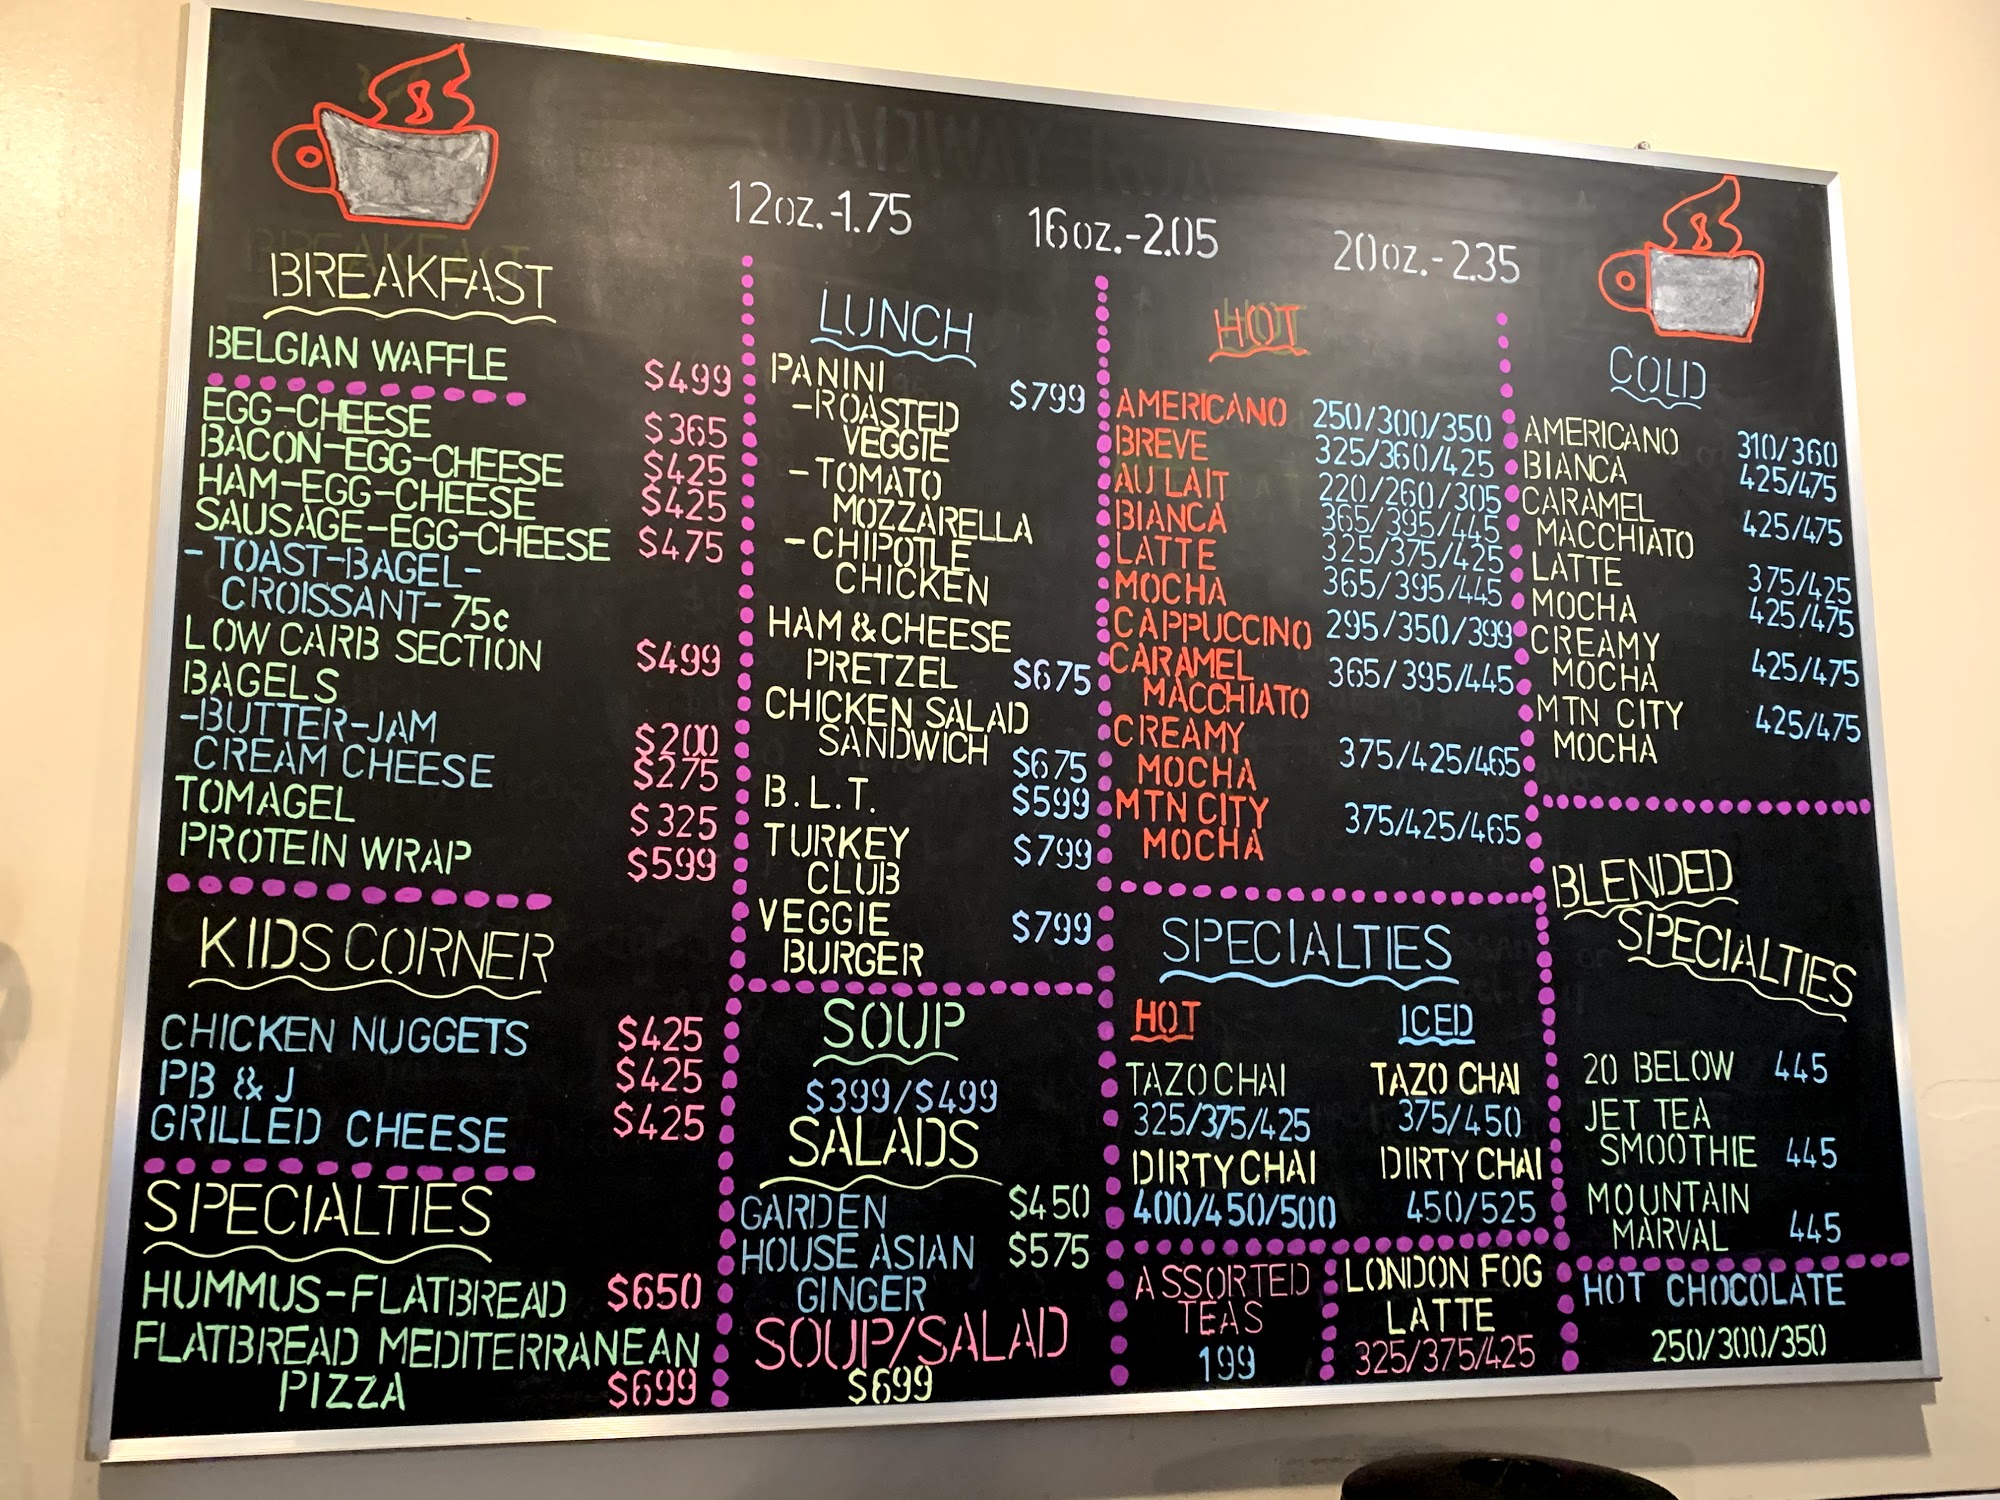 12oz.-1.75 16oz.-2.05 20oz.-2.35
BREAKFAST
BELGIAN WAFFLE $499
EGG-CHEESE $365
BACON-EGG-CHEESE $425
HAM-EGG-CHEESE $425
SAUSAGE-EGG-CHEESE $475
-TOAST-BAGEL-
CROISSANT-75¢
LOW CARB SECTION $499
BAGELS
-BUTTER-JAM $200
CREAM CHEESE $275
TOMAGEL $325
PROTEIN WRAP $599
KIDS CORNER
CHICKEN NUGGETS $425
PB & J $425
GRILLED CHEESE $425
SPECIALTIES
HUMMUS-FLATBREAD $650
FLATBREAD MEDITERRANEAN
PIZZA $699
LUNCH
PANINI $799
-ROASTED
VEGGIE
-TOMATO
MOZZARELLA
-CHIPOTLE
CHICKEN
HAM & CHEESE
PRETZEL $675
CHICKEN SALAD
SANDWICH $675
B.L.T. $599
TURKEY $799
CLUB
VEGGIE $799
BURGER
SOUP
$399/$499
SALADS
GARDEN $450
HOUSE ASIAN $575
GINGER
SOUP/SALAD
$699
HOT
AMERICANO 250/300/350
BREVE 325/360/425
AU LAIT 220/260/305
BIANCA 365/395/445
LATTE 325/375/425
MOCHA 365/395/445
CAPPUCCINO 295/350/399
CARAMEL 365/395/445
MACCHIATO
CREAMY 375/425/465
MOCHA
MTN CITY 375/425/465
MOCHA
SPECIALTIES
HOT
TAZO CHAI
325/375/425
DIRTY CHAI
400/450/500
ICED
TAZO CHAI
375/450
DIRTY CHAI
450/525
ASSORTED
TEAS
199
LONDON FOG
LATTE
325/375/425
COLD
AMERICANO 310/360
BIANCA 425/475
CARAMEL 425/475
MACCHIATO
LATTE 375/425
MOCHA 425/475
CREAMY 425/475
MOCHA
MTN CITY 425/475
MOCHA
BLENDED
SPECIALTIES
20 BELOW 445
JET TEA
SMOOTHIE 445
MOUNTAIN
MARVAL 445
HOT CHOCOLATE
250/300/350